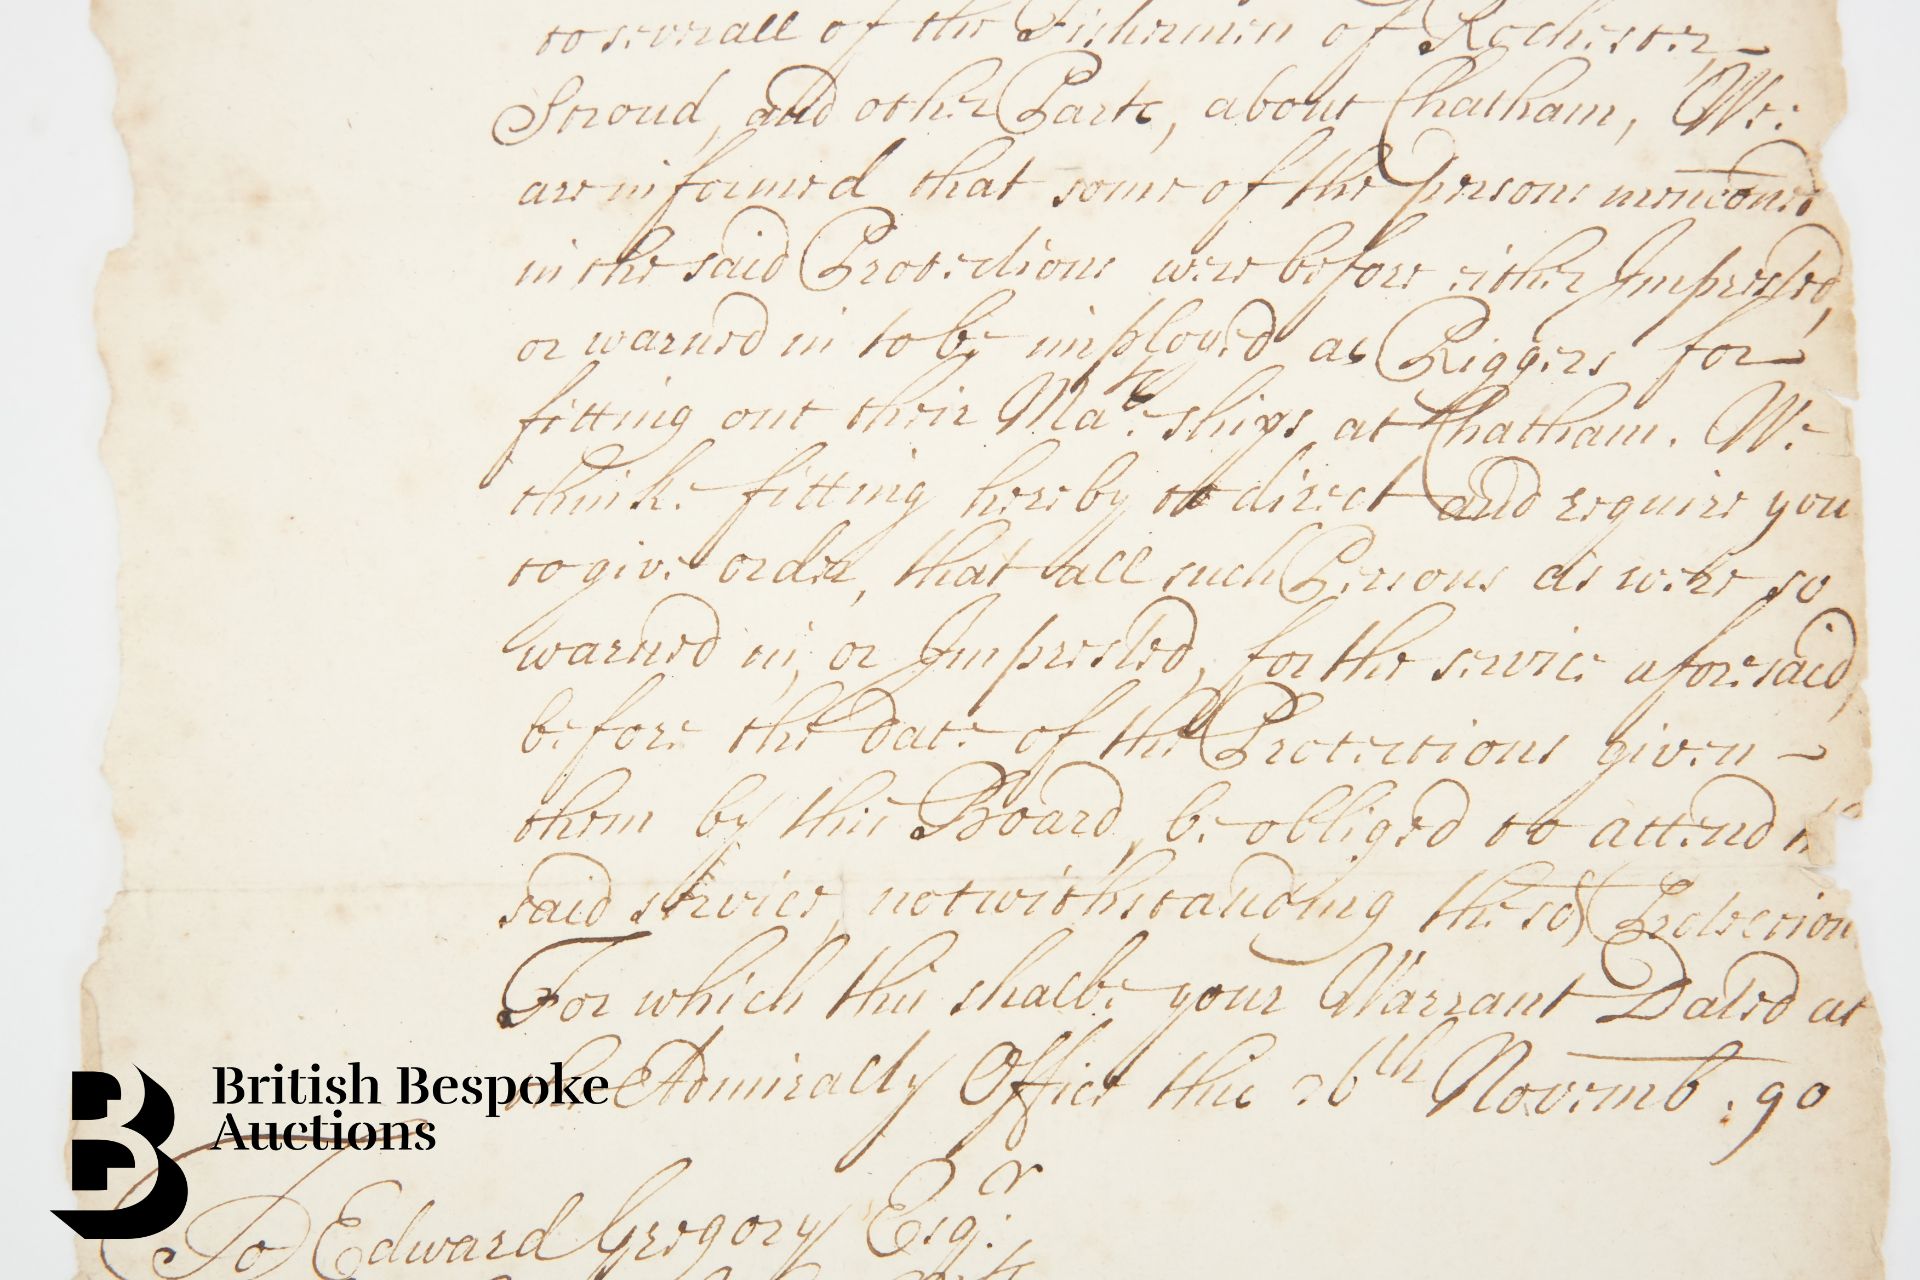 to severall of the Fishermen of Rochester,
Stroud, and other Parts, about Chatham, We
are informed that some of the persons mencõned
in the said Protections were before either Imprested,
or warned in to be imployed as Riggers for
fitting out their Ma:ts ships at Chatham. We
thinke fitting hereby to direct and require you
to give order, that all such Persons as were so
warned in, or Imprested, for the service aforesaid,
before the date of the Protections given
them by this Board, be obliged to attend
said service, notwithstanding the sd Protection
For which this shalbe your Warrant Dated at
the Admiralty Office this 26th Novemb: 90
To Edward Gregory Esqr
British Bespoke
Auctions